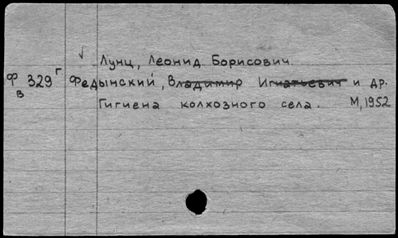 √ Лунц, Леонид Борисович.
Ф 329г Федынский, Владимир Игнатьевич и др.
в Гигиена колхозного села. М, 1952